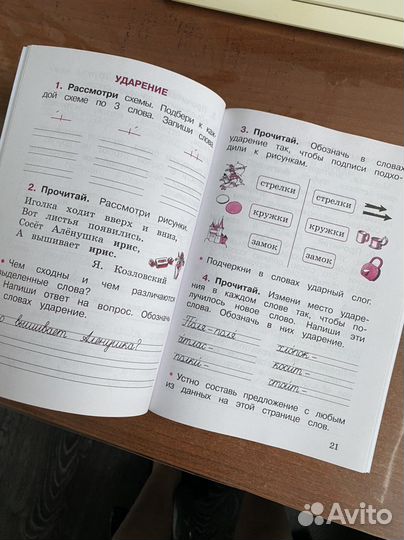 УДАРЕНИЕ
1. Рассмотри схемы. Подбери к каж-
дой схеме по 3 слова. Запиши слова.
2. Прочитай. Рассмотри рисунки.
Иголка ходит вверх и вниз,
Вот листья появились.
Сосёт Алёнушка ирис,
А вышивает ирис.
Я. Козловский
• Чем сходны и чем различаются
выделенные слова?
Напиши ответ на вопрос. Обозначь
словах ударение.
вышивает Алёнушка?
3. Прочитай. Обозначь в словах
ударение так, чтобы подписи подхо-
дили к рисункам.
стрелки
стрелки
кружки
кружки
замок
замок
• Подчеркни в словах ударный слог.
4. Прочитай. Измени место ударе-
ния в каждом слове так, чтобы по-
лучилось новое слово. Напиши эти
слова. Обозначь в них ударение.
Поля – поля
хлопок –
атлас –
косит –
полки –
стоит –
• Устно составь предложение с любым
из данных на этой странице слов.
21
Avito